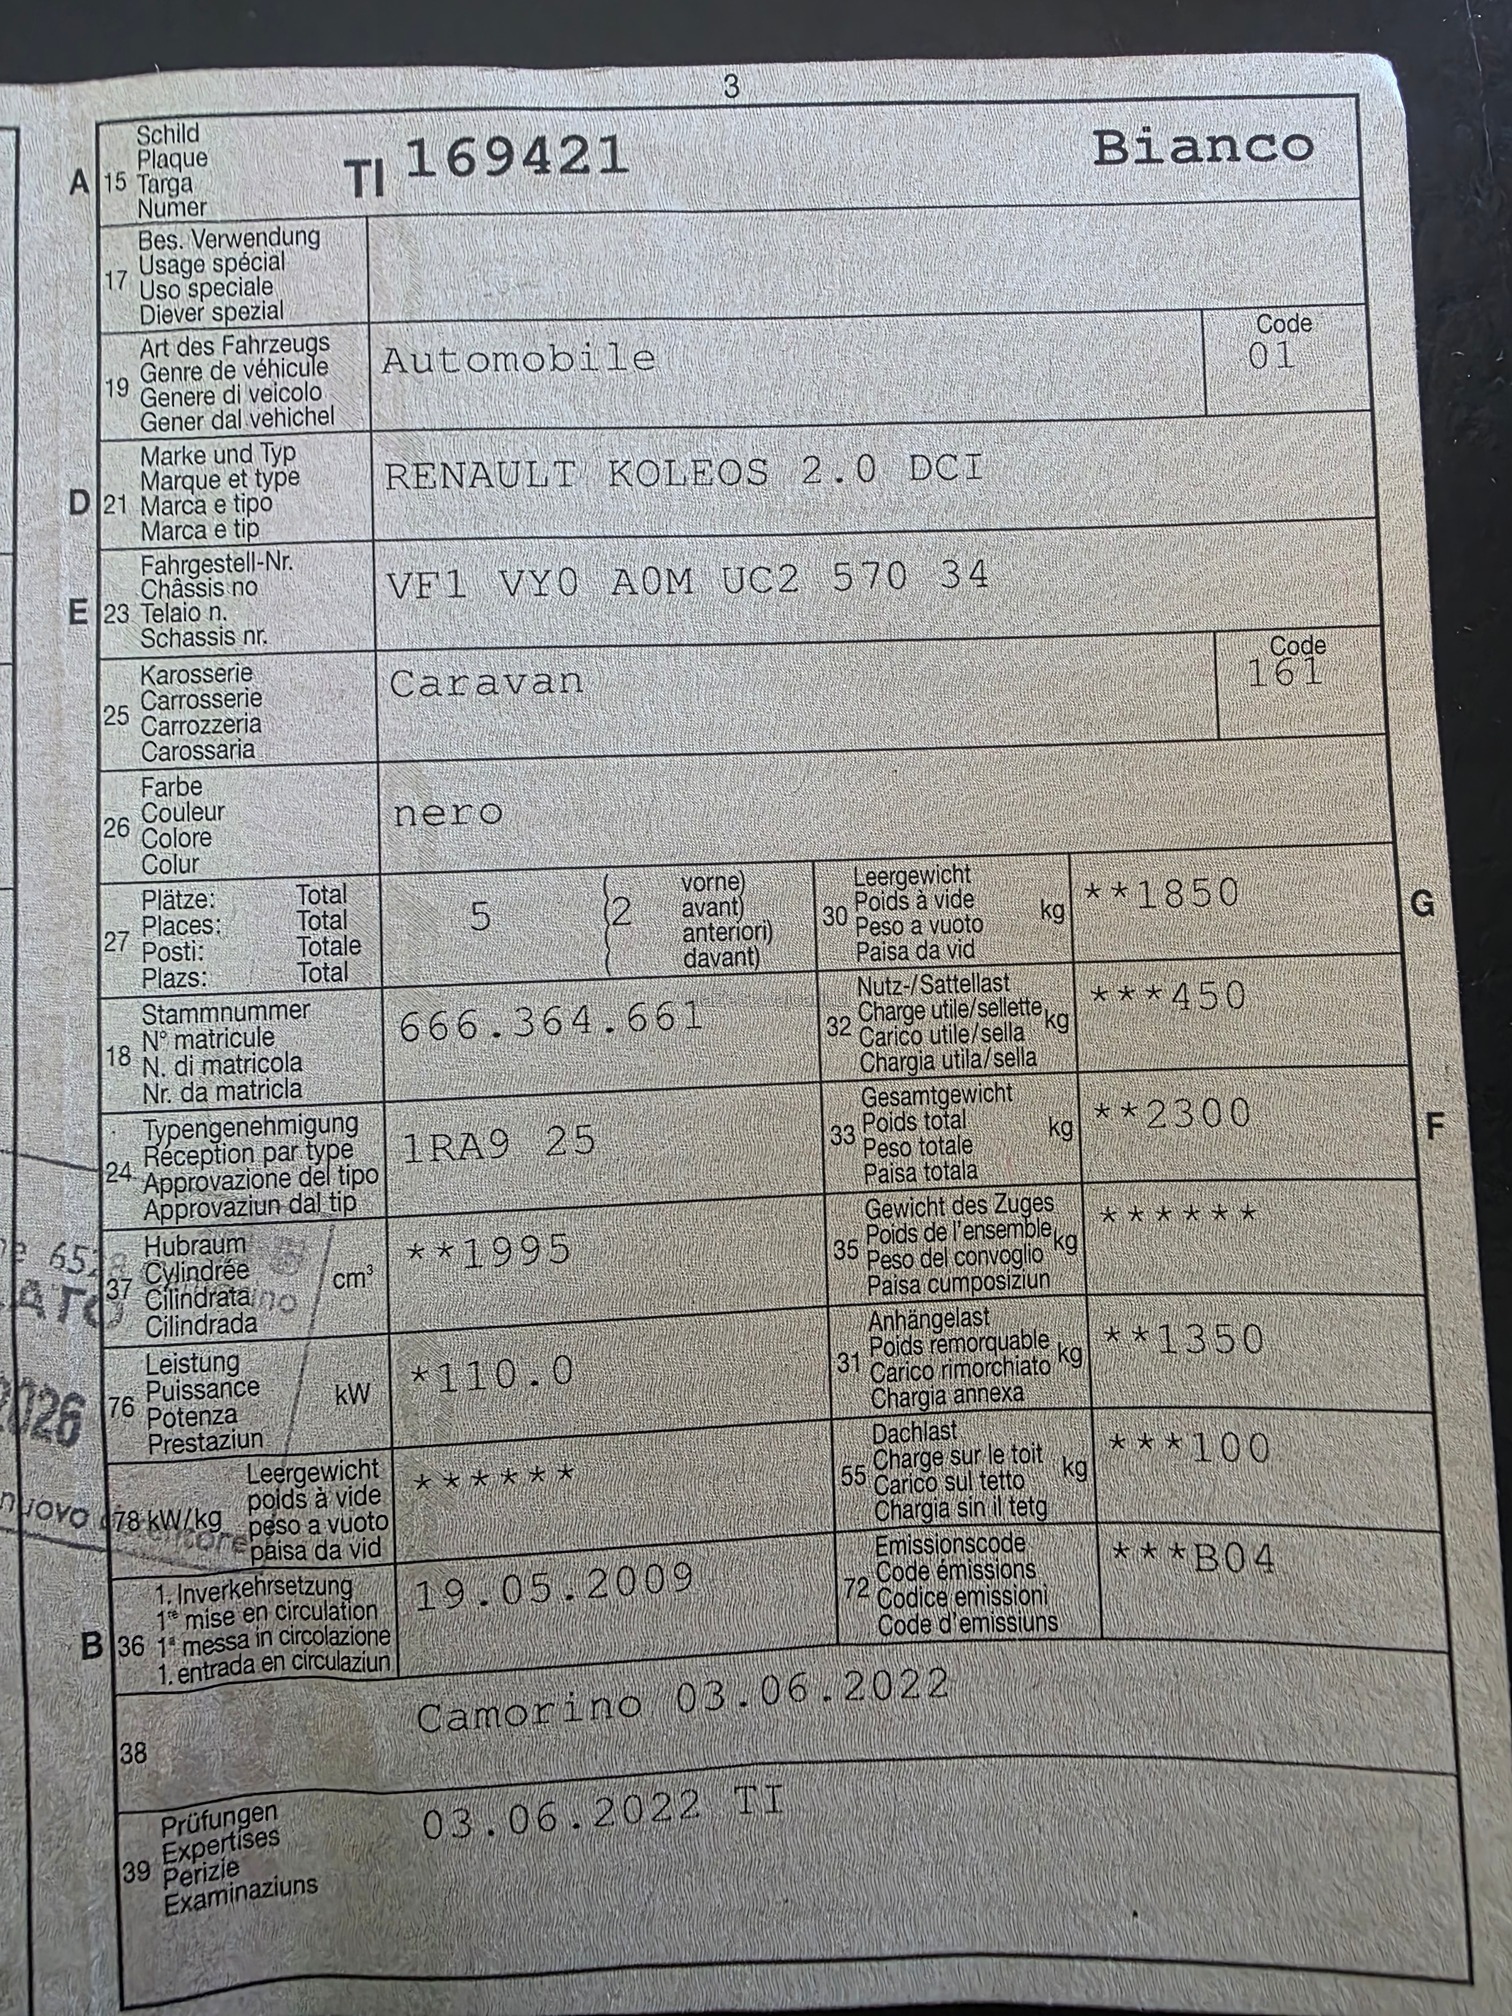 3
A 15 Schild
Plaque
Targa
Numer
TI 169421 Bianco
17 Bes. Verwendung
Usage spécial
Uso speciale
Diever spezial
19 Art des Fahrzeugs
Genre de véhicule
Genere di veicolo
Gener dal vehichel
Automobile
Code
01
D 21 Marke und Typ
Marque et type
Marca e tipo
Marca e tip
RENAULT KOLEOS 2.0 DCI
E 23 Fahrgestell-Nr.
Châssis no
Telaio n.
Schassis nr.
VF1 VY0 A0M UC2 570 34
25 Karosserie
Carrosserie
Carrozzeria
Carossaria
Caravan
Code
161
26 Farbe
Couleur
Colore
Colur
nero
27 Plätze: Total
Places: Total
Posti: Totale
Plazs: Total
5 (2 vorne)
avant)
anteriori)
davant)
30 Leergewicht
Poids à vide
Peso a vuoto
Paisa da vid
kg **1850 G
18 Stammnummer
N° matricule
N. di matricola
Nr. da matricla
666.364.661
32 Nutz-/Sattellast
Charge utile/sellette
Carico utile/sella
Chargia utila/sella
kg ***450
24 Typengenehmigung
Réception par type
Approvazione del tipo
Approvaziun dal tip
1RA9 25
33 Gesamtgewicht
Poids total
Peso totale
Paisa totala
kg **2300 F
37 Hubraum
Cylindrée
Cilindrata
Cilindrada
cm³ **1995
35 Gewicht des Zuges
Poids de l'ensemble
Peso del convoglio
Paisa cumposiziun
kg ******
76 Leistung
Puissance
Potenza
Prestaziun
kW *110.0
31 Anhängelast
Poids remorquable
Carico rimorchiato
Chargia annexa
kg **1350
78 kW/kg Leergewicht
poids à vide
peso a vuoto
paisa da vid
******
55 Dachlast
Charge sur le toit
Carico sul tetto
Chargia sin il tetg
kg ***100
B 36 1. Inverkehrsetzung
1re mise en circulation
1a messa in circolazione
1. entrada en circulaziun
19.05.2009
72 Emissionscode
Code émissions
Codice emissioni
Code d'emissiuns
***B04
38 Camorino 03.06.2022
39 Prüfungen
Expertises
Perizie
Examinaziuns
03.06.2022 TI
2026
nuovo